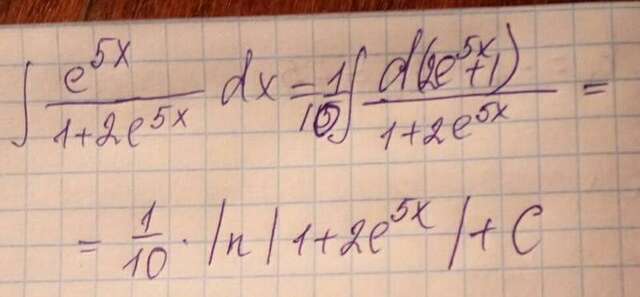 ∫ e^5x / 1+2e^5x dx = 1/10 ∫ d(2e^5x+1) / 1+2e^5x =
= 1/10 · ln|1+2e^5x| + C